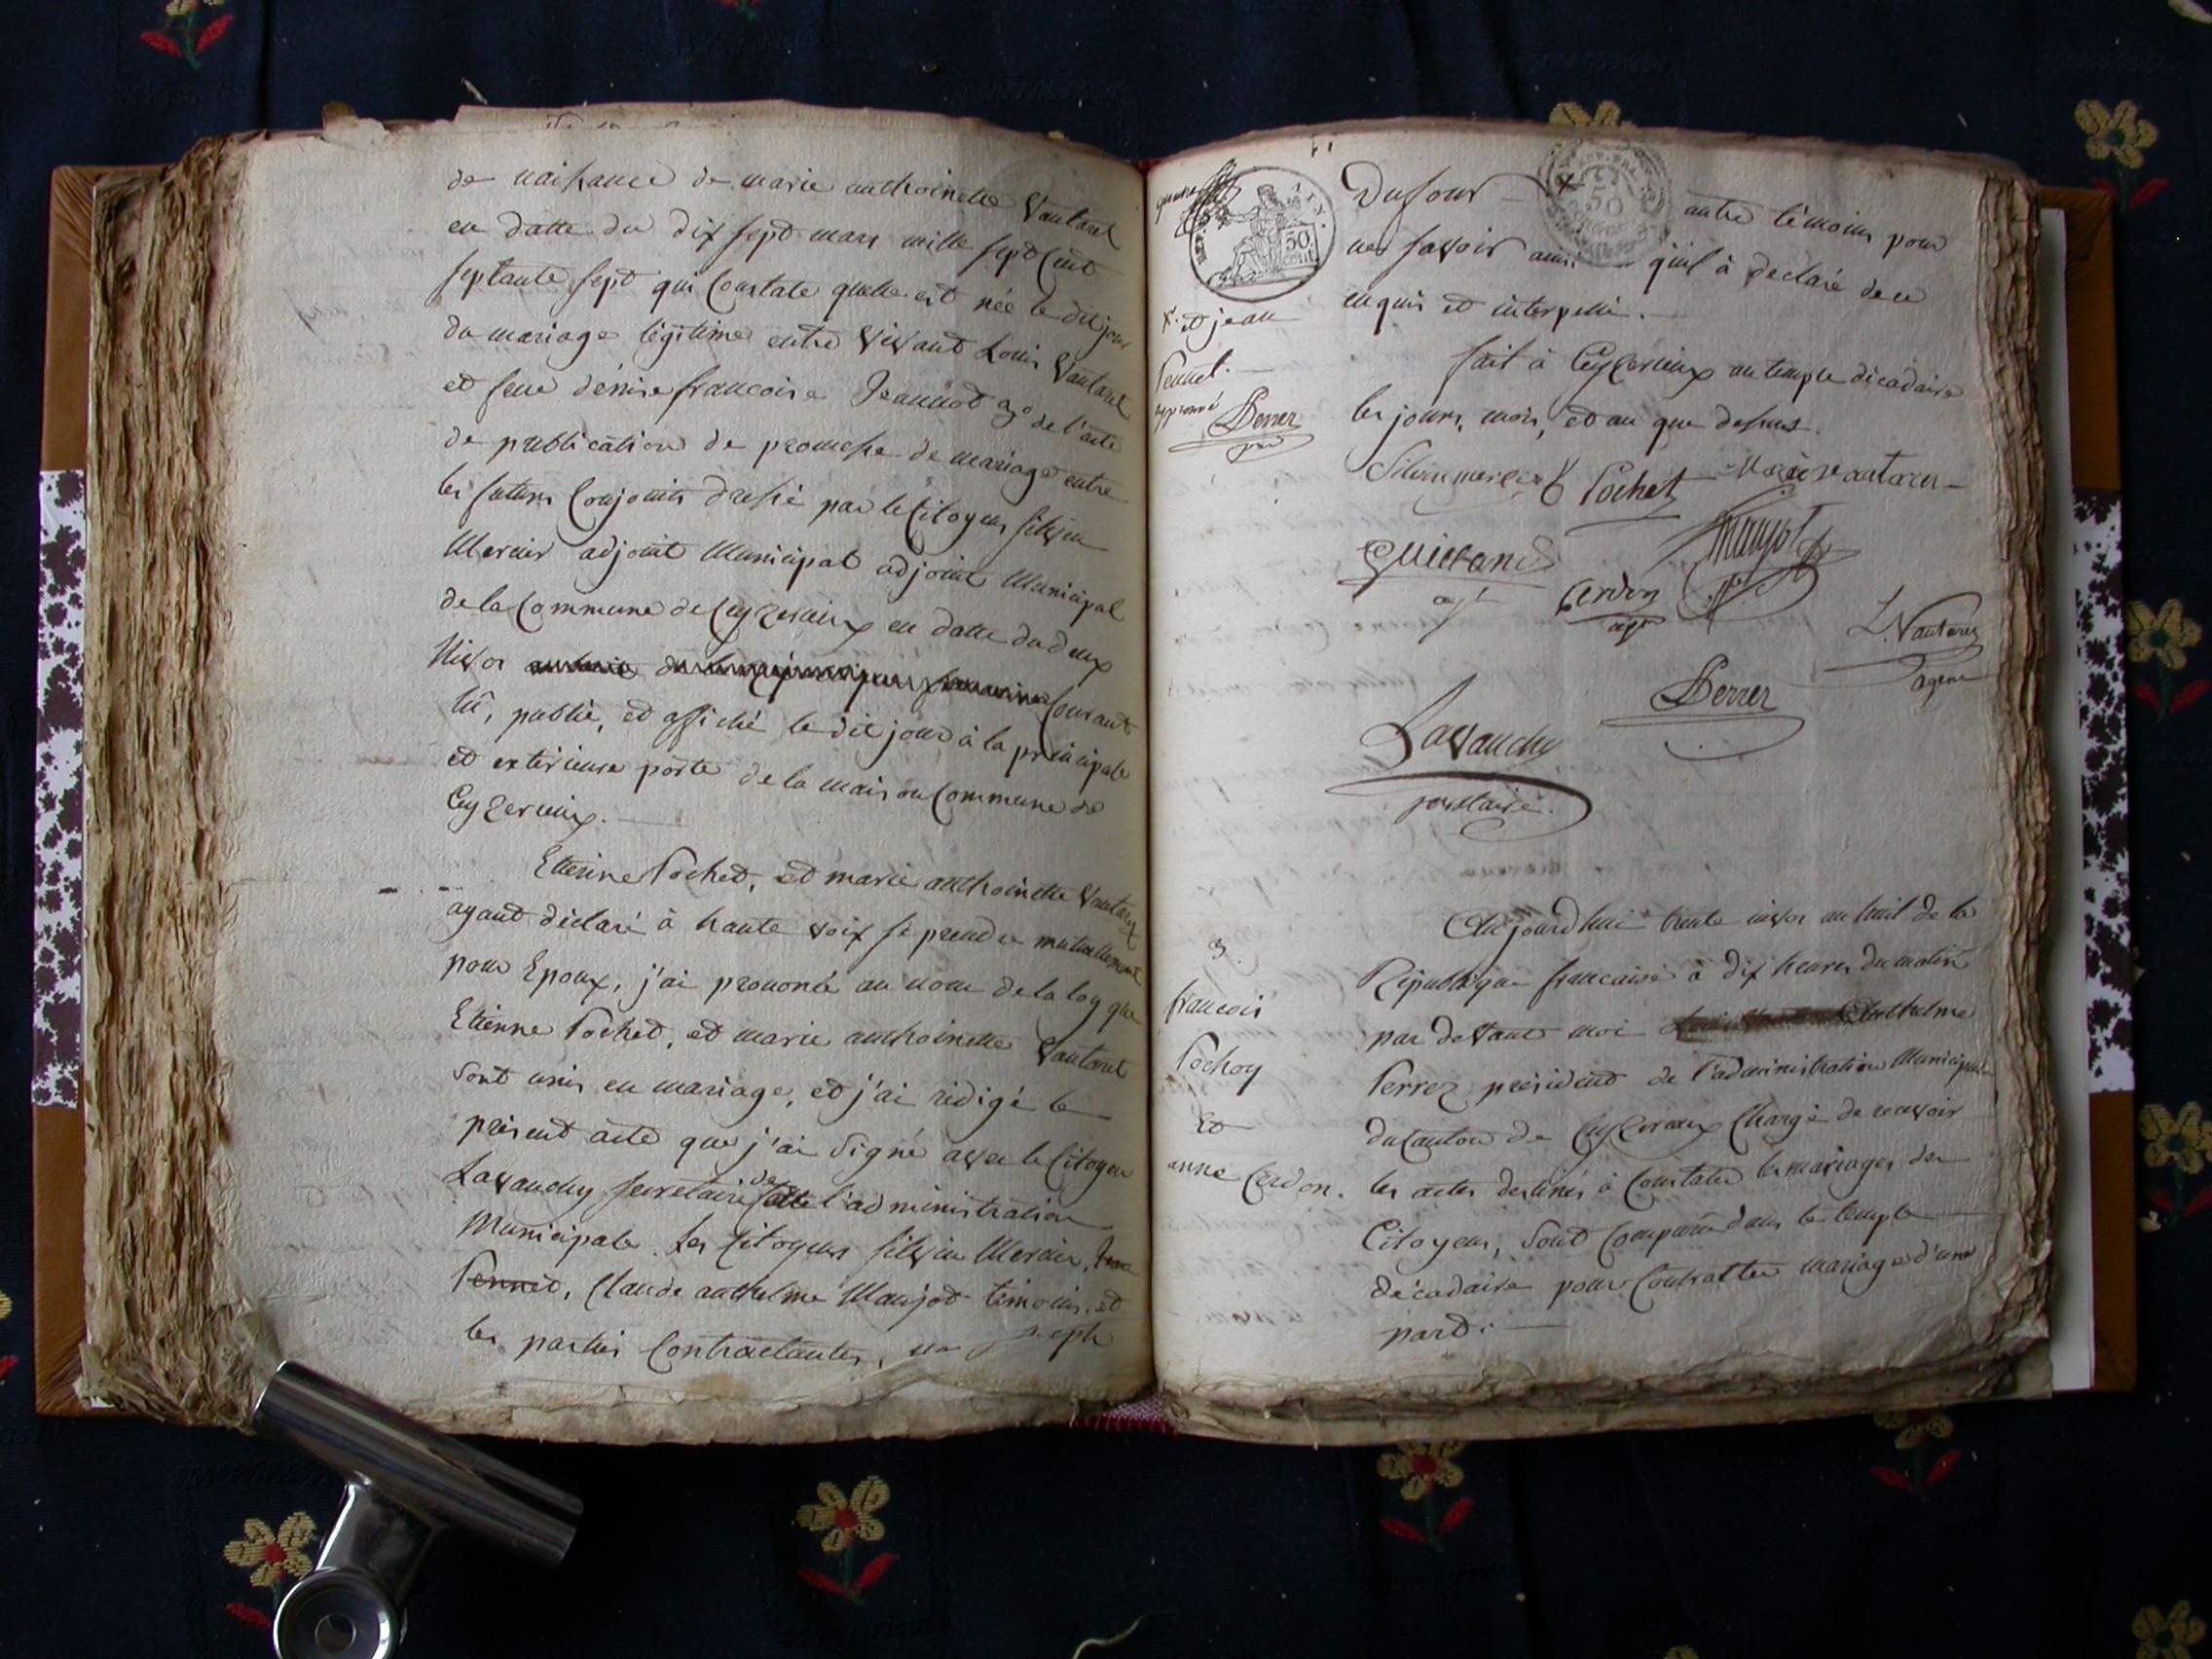 de naissance de marie anthoinette Vautaret
en datte du dix sept mars mille sept cent
septante sept qui Constate quelle est née le dit jour
du mariage légitime entre vivant Louis Vautaret
et feue dénise francoise Jeannod 3º de l'acte
de publication de promesse de mariage entre
les futurs Conjoints dressé par le Citoyen silvin
Mercier adjoint Municipal adjoint Municipal
de la Commune de Ceyzerieux en datte du deux
Nivos Courant
lû, publié, et affiché le dit jour à la principale
et extérieure porte de la maison Commune de
Ceyzerieux.
Etienne Pochet, et marie anthoinette Vautaret
ayant déclaré à haute voix se prendre mutuellement
pour Epoux, j'ai prononcé au nom de la loy que
Etienne Pochet, et marie anthoinette Vautaret
sont unis en mariage, et j'ai rédigé le
présent acte que j'ai signé avec le Citoyen
Lavanchy secretaire de l'administration
Municipale. Les Citoyens silvin Mercier,
Pennet, Claude anthelme Maujot témoins, et
les parties Contractantes, joseph
50 cent
Dufour autre témoins pour
ne savoir ainsi quil à déclaré de ce
enquis et interpellé.
X. et jean
Pennet.
approuvé
Perrez
pdt
fait à Ceyzerieux au temple décadaire
les jours, mois, et an que dessus.
Silvin mercier E Pochet Marie Vautaret
Guilland
agt
Maujot
Cerdon
agt
L. Vautaret
agent
Perrez
Lavanchy
secretaire.
3.
francois
Pochoy
Et
anne Cerdon.
Aujourdhui trente nivos an huit de la
République francaise à dix heures du matin
par devant moi Anthelme
Perrez président de l'administration Municipale
du Canton de Ceyzerieux Chargé de recevoir
les actes destinés à Constater les mariages des
Citoyens, sont Comparu dans le temple
décadaire pour Contratter mariage d'une
part.